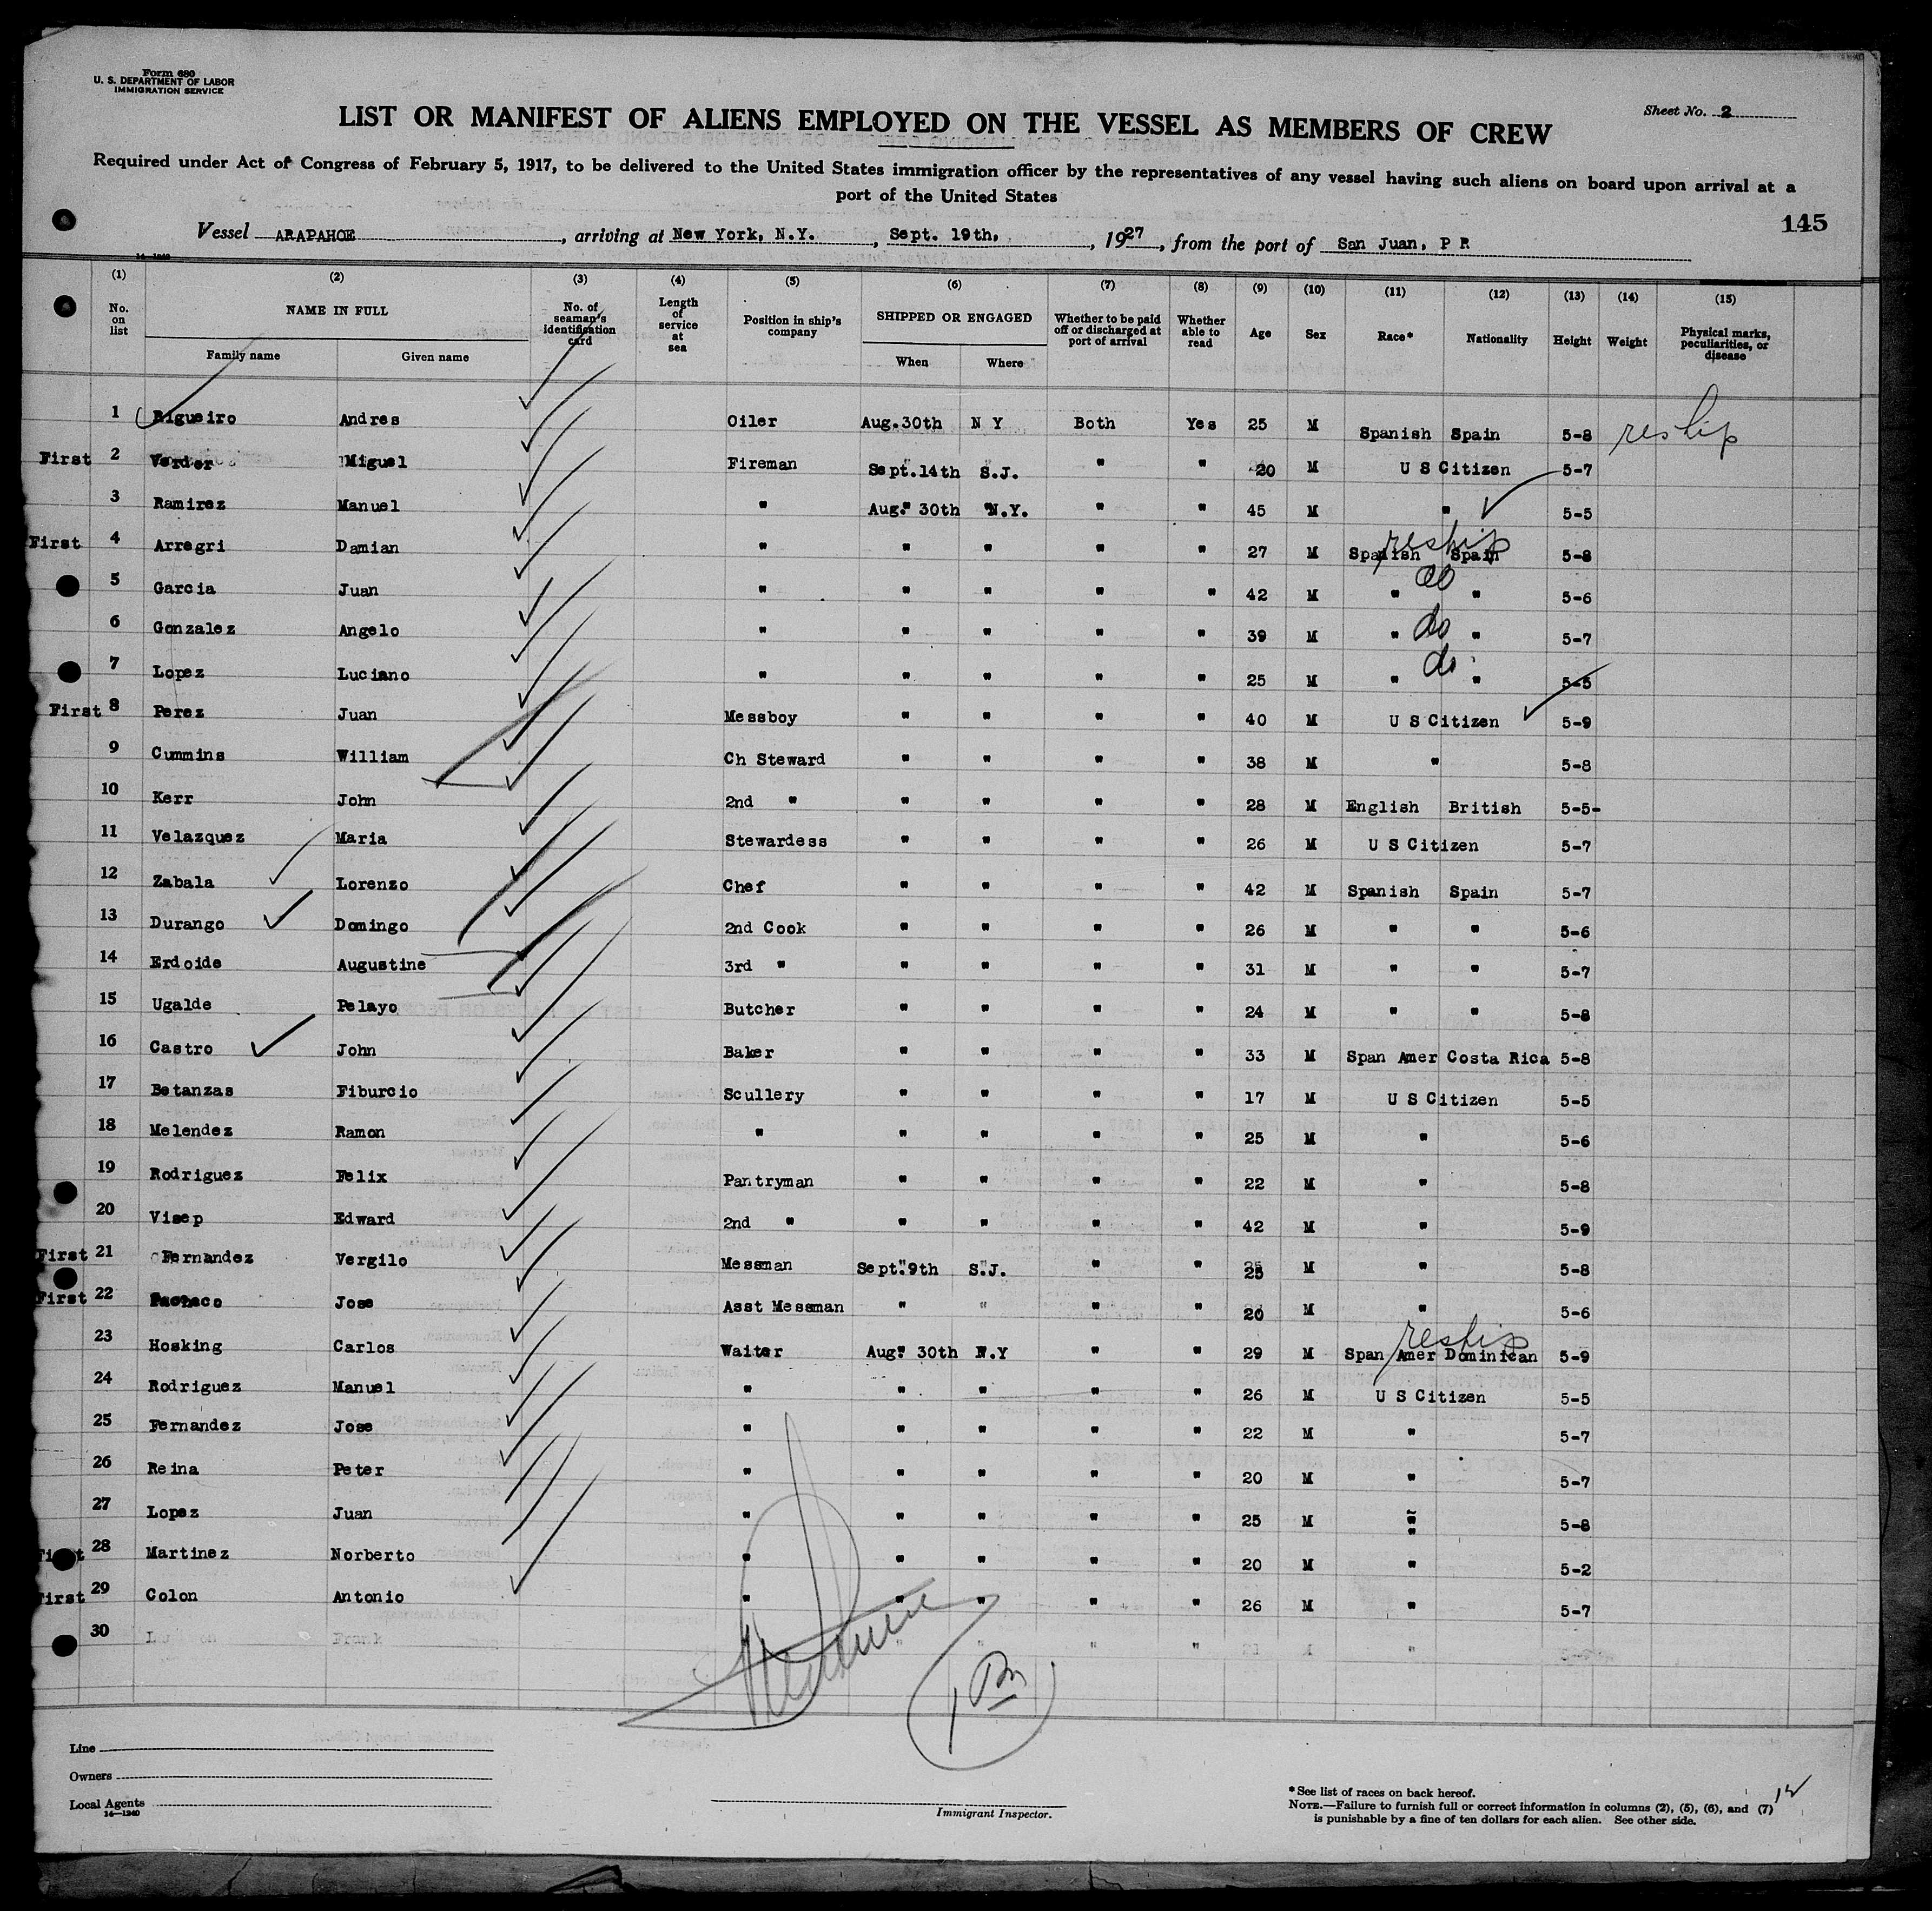 Form 680
U. S. DEPARTMENT OF LABOR
IMMIGRATION SERVICE
Sheet No. 2
LIST OR MANIFEST OF ALIENS EMPLOYED ON THE VESSEL AS MEMBERS OF CREW
Required under Act of Congress of February 5, 1917, to be delivered to the United States immigration officer by the representatives of any vessel having such aliens on board upon arrival at a
port of the United States
145
Vessel ARAPAHOE, arriving at New York, N.Y., Sept. 19th, 1927, from the port of San Juan, P R
14-1240
(1) (2) (3) (4) (5) (6) (7) (8) (9) (10) (11) (12) (13) (14) (15)
No. on list NAME IN FULL Family name Given name No. of seaman's identification card Length of service at sea Position in ship's company SHIPPED OR ENGAGED When Where Whether to be paid off or discharged at port of arrival Whether able to read Age Sex Race* Nationality Height Weight Physical marks, peculiarities, or disease
1 Rigueiro Andres Oiler Aug.30th N Y Both Yes 25 M Spanish Spain 5-8 reship
First 2 Verder Miguel Fireman Sept.14th S.J. " " 20 M U S Citizen 5-7
3 Ramirez Manuel " Aug. 30th N.Y. " " 45 M " 5-5
First 4 Arregri Damian " " " " " 27 M Spanish Spain 5-8 reship
5 Garcia Juan " " " " " 42 M " " 5-6 do
6 Gonzalez Angelo " " " " " 39 M " " 5-7 do
7 Lopez Luciano " " " " " 25 M " " 5-5 do
First 8 Perez Juan Messboy " " " " 40 M U S Citizen 5-9
9 Cummins William Ch Steward " " " " 38 M " 5-8
10 Kerr John 2nd " " " " " 28 M English British 5-5-
11 Velazquez Maria Stewardess " " " " 26 M U S Citizen 5-7
12 Zabala Lorenzo Chef " " " " 42 M Spanish Spain 5-7
13 Durango Domingo 2nd Cook " " " " 26 M " " 5-6
14 Erdoide Augustine 3rd " " " " " 31 M " " 5-7
15 Ugalde Pelayo Butcher " " " " 24 M " " 5-8
16 Castro John Baker " " " " 33 M Span Amer Costa Rica 5-8
17 Betanzas Fiburcio Scullery " " " " 17 M U S Citizen 5-5
18 Melendez Ramon " " " " " 25 M " 5-6
19 Rodriguez Felix Pantryman " " " " 22 M " 5-8
20 Visep Edward 2nd " " " " " 42 M " 5-9
First 21 Fernandez Vergilo Messman Sept.9th S.J. " " 25 M " 5-8
First 22 Pacheco Jose Asst Messman " " " " 20 M " 5-6
23 Hosking Carlos Waiter Aug. 30th N.Y " " 29 M Span Amer Dominican 5-9 reship
24 Rodriguez Manuel " " " " " 26 M U S Citizen 5-5
25 Fernandez Jose " " " " " 22 M " 5-7
26 Reina Peter " " " " " 20 M " 5-7
27 Lopez Juan " " " " " 25 M " 5-8
First 28 Martinez Norberto " " " " " 20 M " 5-2
First 29 Colon Antonio " " " " " 26 M " 5-7
30 Frank " " " " "
Line
Owners
Local Agents
14-1240
Immigrant Inspector.
*See list of races on back hereof.
NOTE.—Failure to furnish full or correct information in columns (2), (5), (6), and (7)
is punishable by a fine of ten dollars for each alien. See other side.
12